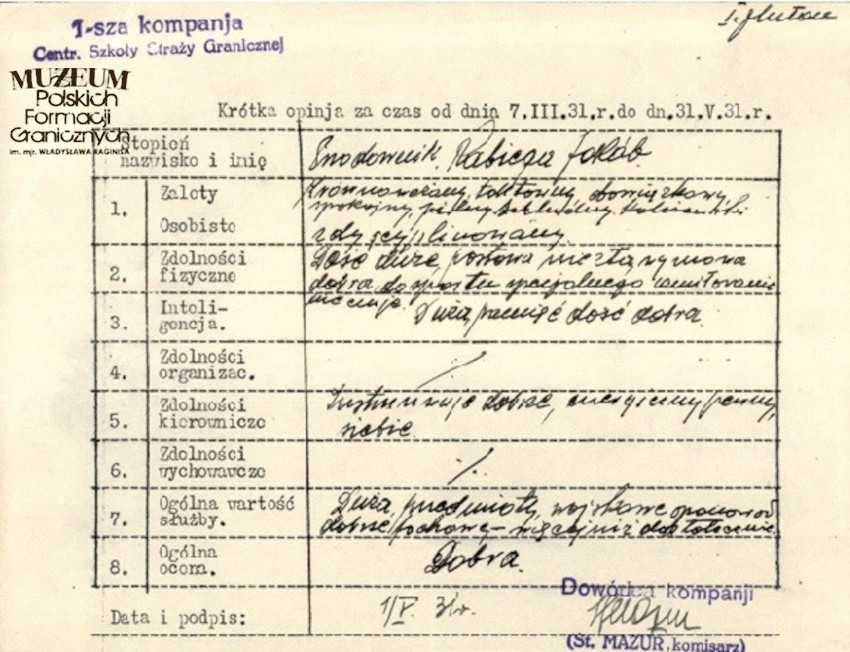 I. pluton
1-sza kompanja
Centr. Szkoły Straży Granicznej
MUZEUM
Polskich
Formacji
Granicznych
im. mjr. WŁADYSŁAWA RAGINISA
Krótka opinja za czas od dnia 7.III.31.r.do dn.31.V.31.r.
Stopień
nazwisko i imię
Przodownik Kabicza Jakób.
1. Zalety
Osobiste
taktowny, obowiązkowy,
spokojny, pilny
zdyscyplinowany.
2. Zdolności
fizyczne
Dość duże, postawa niezła, wymowa
dobra, do sportu specjalnego zamiłowania
nie ma.
3. Inteli-
gencja.
Duża, pamięć dość dobra.
4. Zdolności
organizac.
./.
5. Zdolności
kierownicze
Instruuje dobrze, energiczny, pewny
siebie.
6. Zdolności
wychowawcze
./.
7. Ogólna wartość
służby.
Duża, przedmioty wojskowe opanował
dobrze, fachowe - więcej niż dostatecznie.
8. Ogólna
ocena.
Dobra.
Data i podpis:
1/V. 31r.
Dowódca kompanji
(St. MAZUR, komisarz)